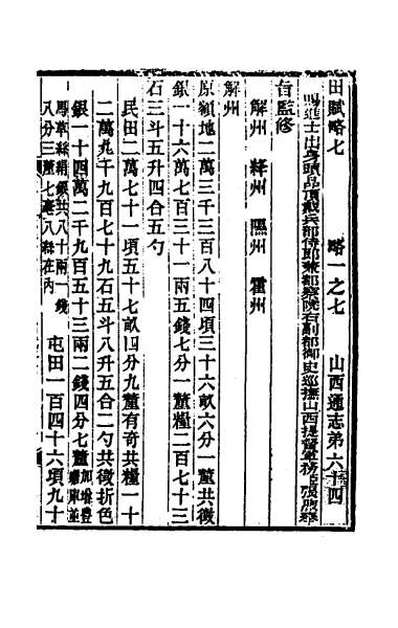 田賦略七　略一之七　山西通志弟六十四
賜進士出身頭品頂戴兵部侍郎兼都察院右副都御史巡撫山西提督鹽務臣張煦奉
旨監修
解州　絳州　隰州　霍州
解州
原額地二萬三千三百八十四頃三十六畝六分一釐共徵
銀一十六萬七百三十一兩五錢七分一釐糧二百七十三
石三斗五升四合五勺
民田二萬七千一項五十七畝四分九釐有奇共糧一十
二萬九千九百七十九石五斗八升五合二勺共徵折色
銀一十四萬二千九百五十三兩二錢四分七釐
馬草絲絹銀共八十兩一錢
八分三釐七毫八絲在內　屯田一百四十六項九十